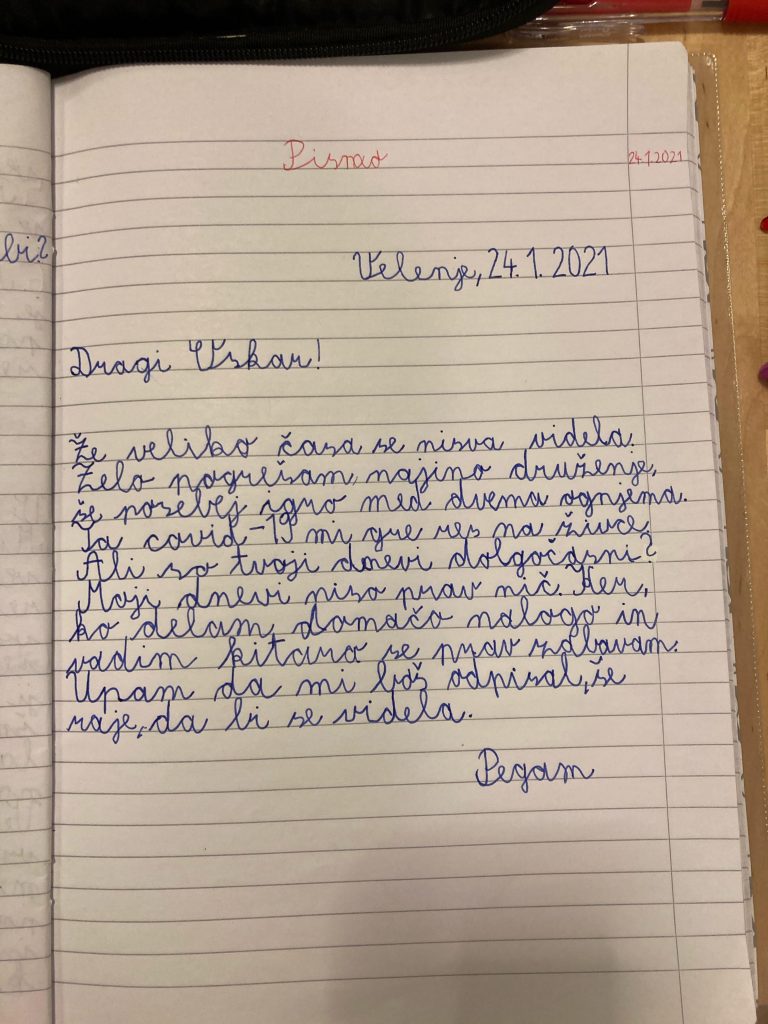 Pismo
24.1.2021
bi?
Velenje, 24. 1. 2021
Dragi Vskar!
Že veliko časa se nisva videla.
Zelo pogrešam najino druženje,
še posebej igro med dvema ognjema.
Ta covid-19 mi gre res na živce.
Ali so tvoji dnevi dolgočasni?
Moji dnevi niso prav nič. Ker,
ko delam domačo nalogo in
vadim kitaro se prav zabavam.
Upam da mi boš odpisal, še
raje, da bi se videla.
Pegam